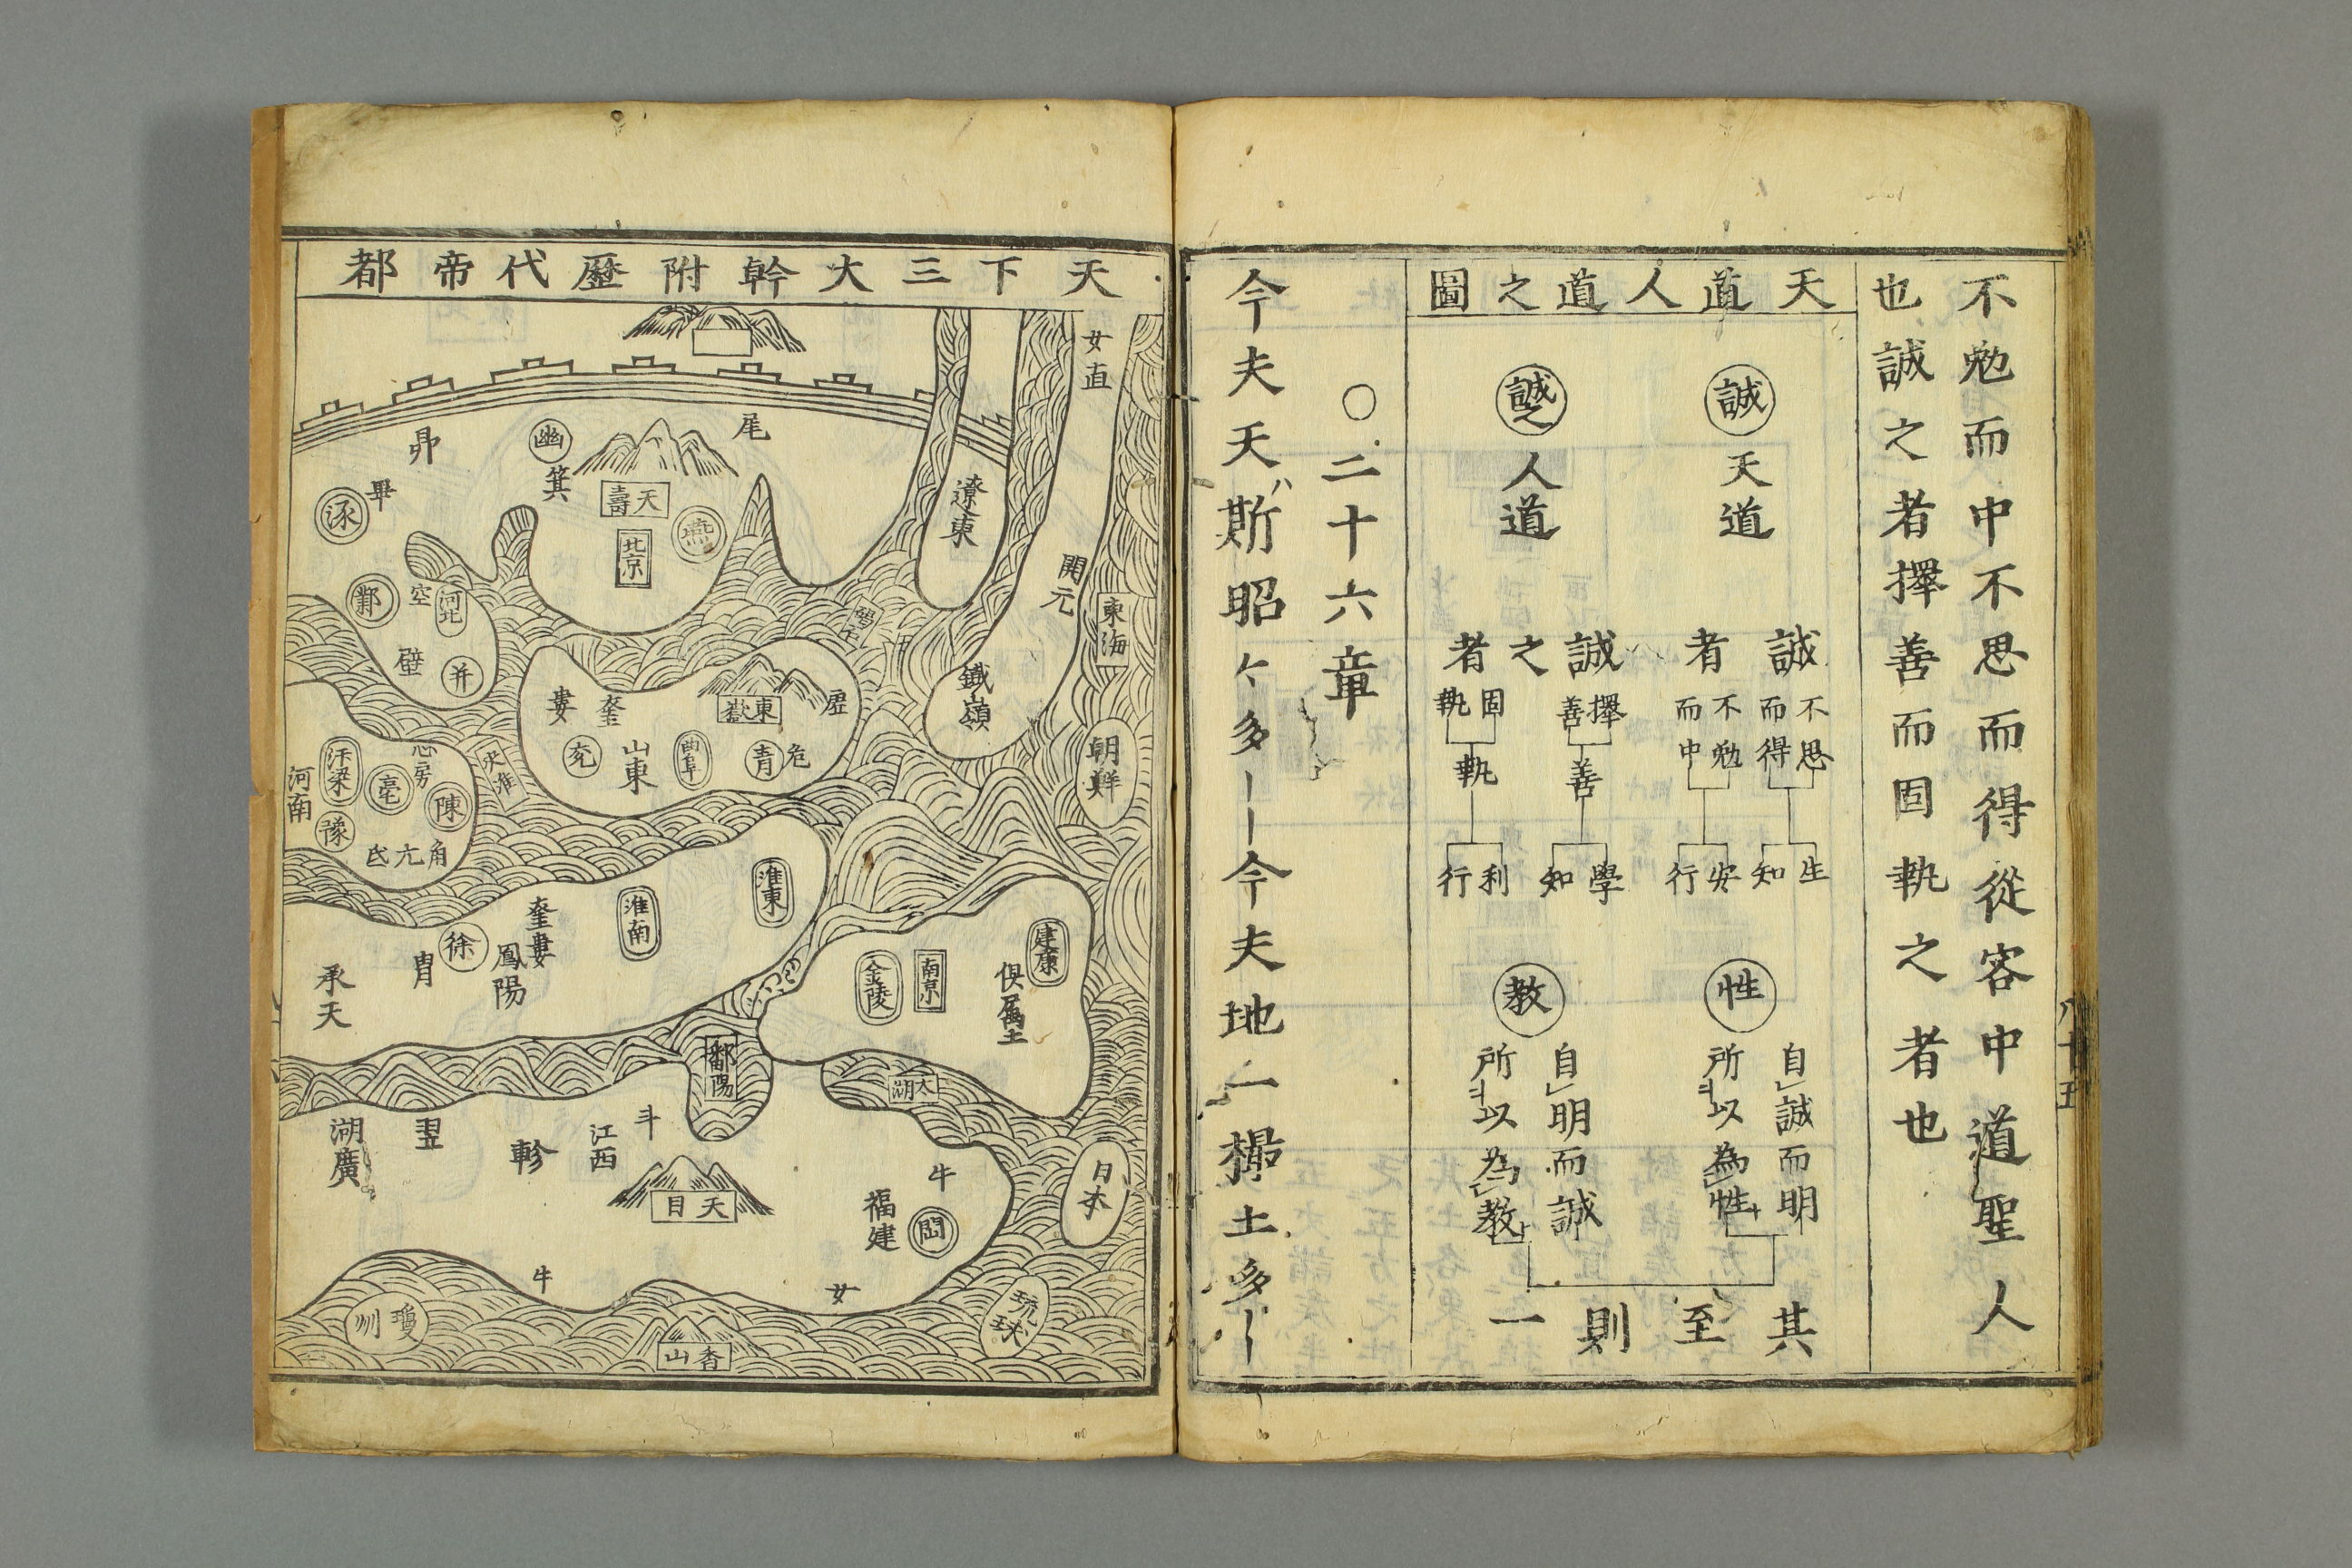 不勉而中不思而得從容中道聖人
也誠之者擇善而固執之者也
天道人道之圖
誠
天道
誠之
人道
誠者
不思而得
不勉而中
生知
安行
誠之者
擇善
固執
善
執
學知
利行
性
自誠而明
所以為性
教
自明而誠
所以為教
其至則一
○二十六章
今夫天ハ斯昭〻多――今夫地一撮土多――
八十五
天下三大幹附歷代帝都
女直
開元
東海
朝鮮
遼東
鐵嶺
尾
天壽
燕
北京
幽
箕
昴
畢
涿
鄴
空
河北
壁
并
東嶽
虛
危
青
曲阜
山東
奎
婁
兗
河南
汴梁
亳
房
陳
豫
角亢氐
淮東
淮南
奎婁
鳳陽
徐
胃
承天
建康
俱屬土
南京
金陵
鄱陽
太湖
日本
琉球
牛
閩
福建
女
斗
江西
天目
軫
翌
湖廣
牛
香山
瓊州